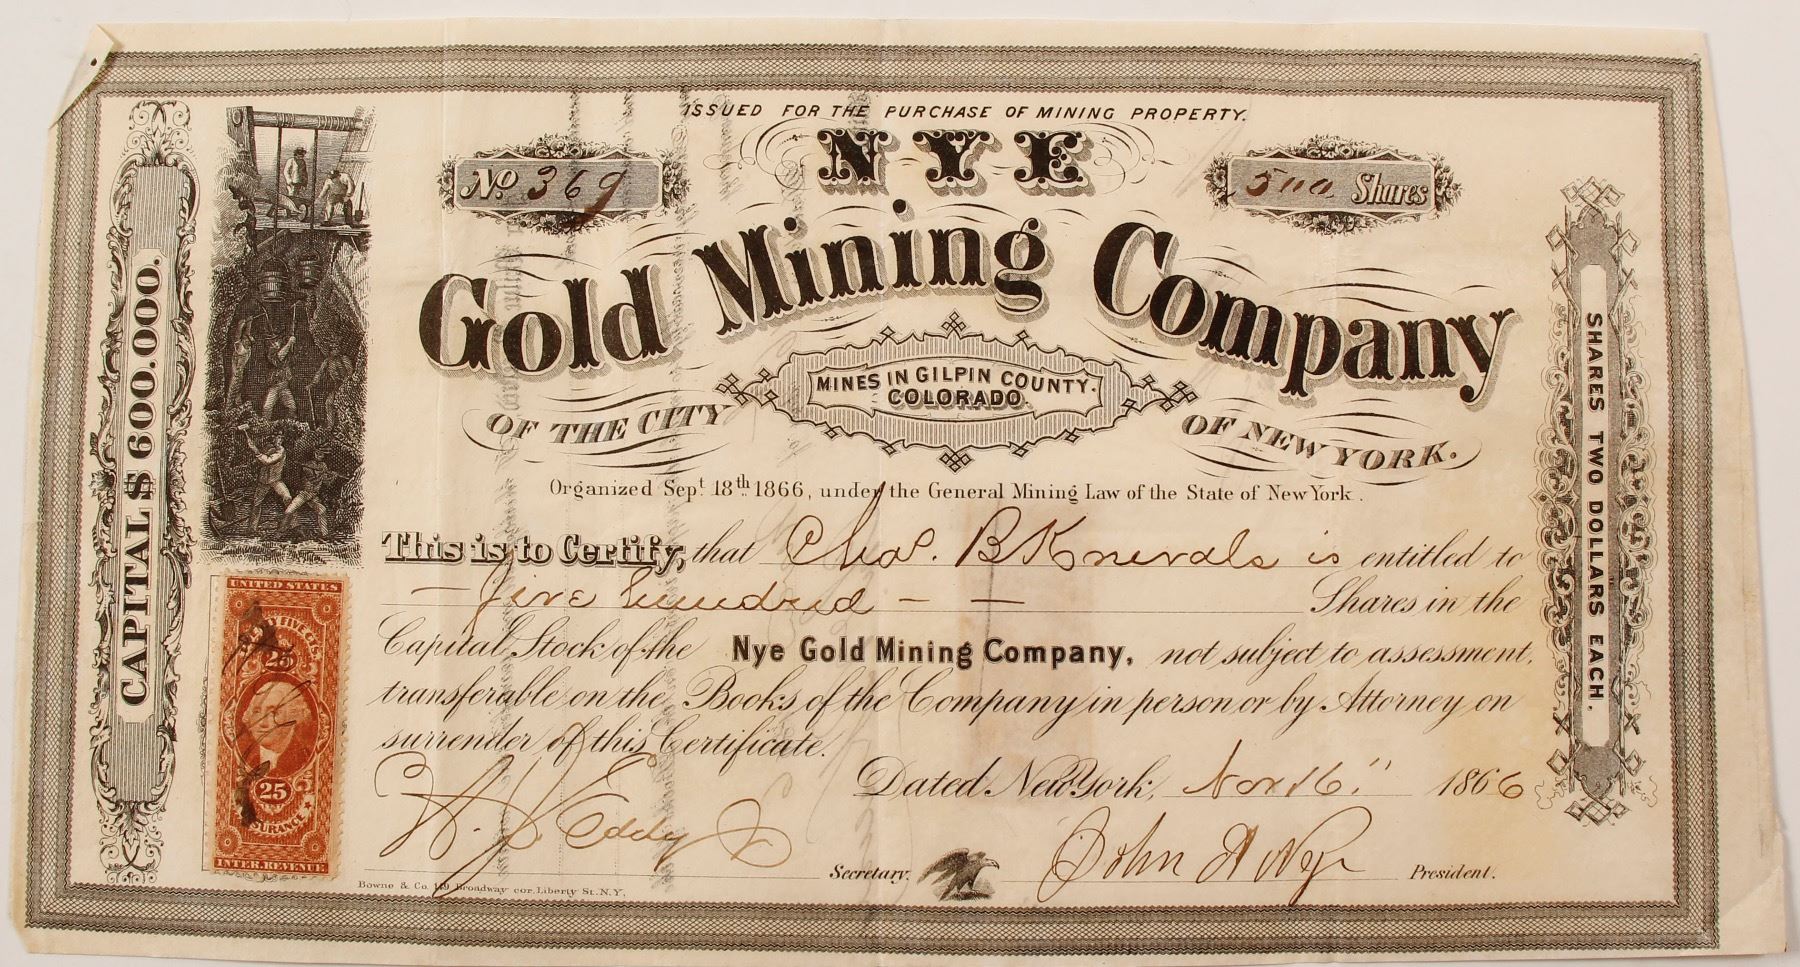 ISSUED FOR THE PURCHASE OF MINING PROPERTY.
No 369
NYE
500 Shares
Gold Mining Company
MINES IN GILPIN COUNTY.
COLORADO.
OF THE CITY OF NEW YORK.
Organized Sept. 18th 1866, under the General Mining Law of the State of New York.
This is to Certify, that Chas. B Knevals is entitled to
— five hundred — — Shares in the
Capital Stock of the Nye Gold Mining Company, not subject to assessment,
transferable on the Books of the Company in person or by Attorney on
surrender of this Certificate.
Dated New York, Nov 16" 1866
Eddy
Secretary.
John A Nye
President.
Bowne & Co. 149 Broadway cor. Liberty St. N.Y.
CAPITAL $600.000.
SHARES TWO DOLLARS EACH.
UNITED STATES
TWENTY FIVE CTS.
25
25
INSURANCE
INTER. REVENUE